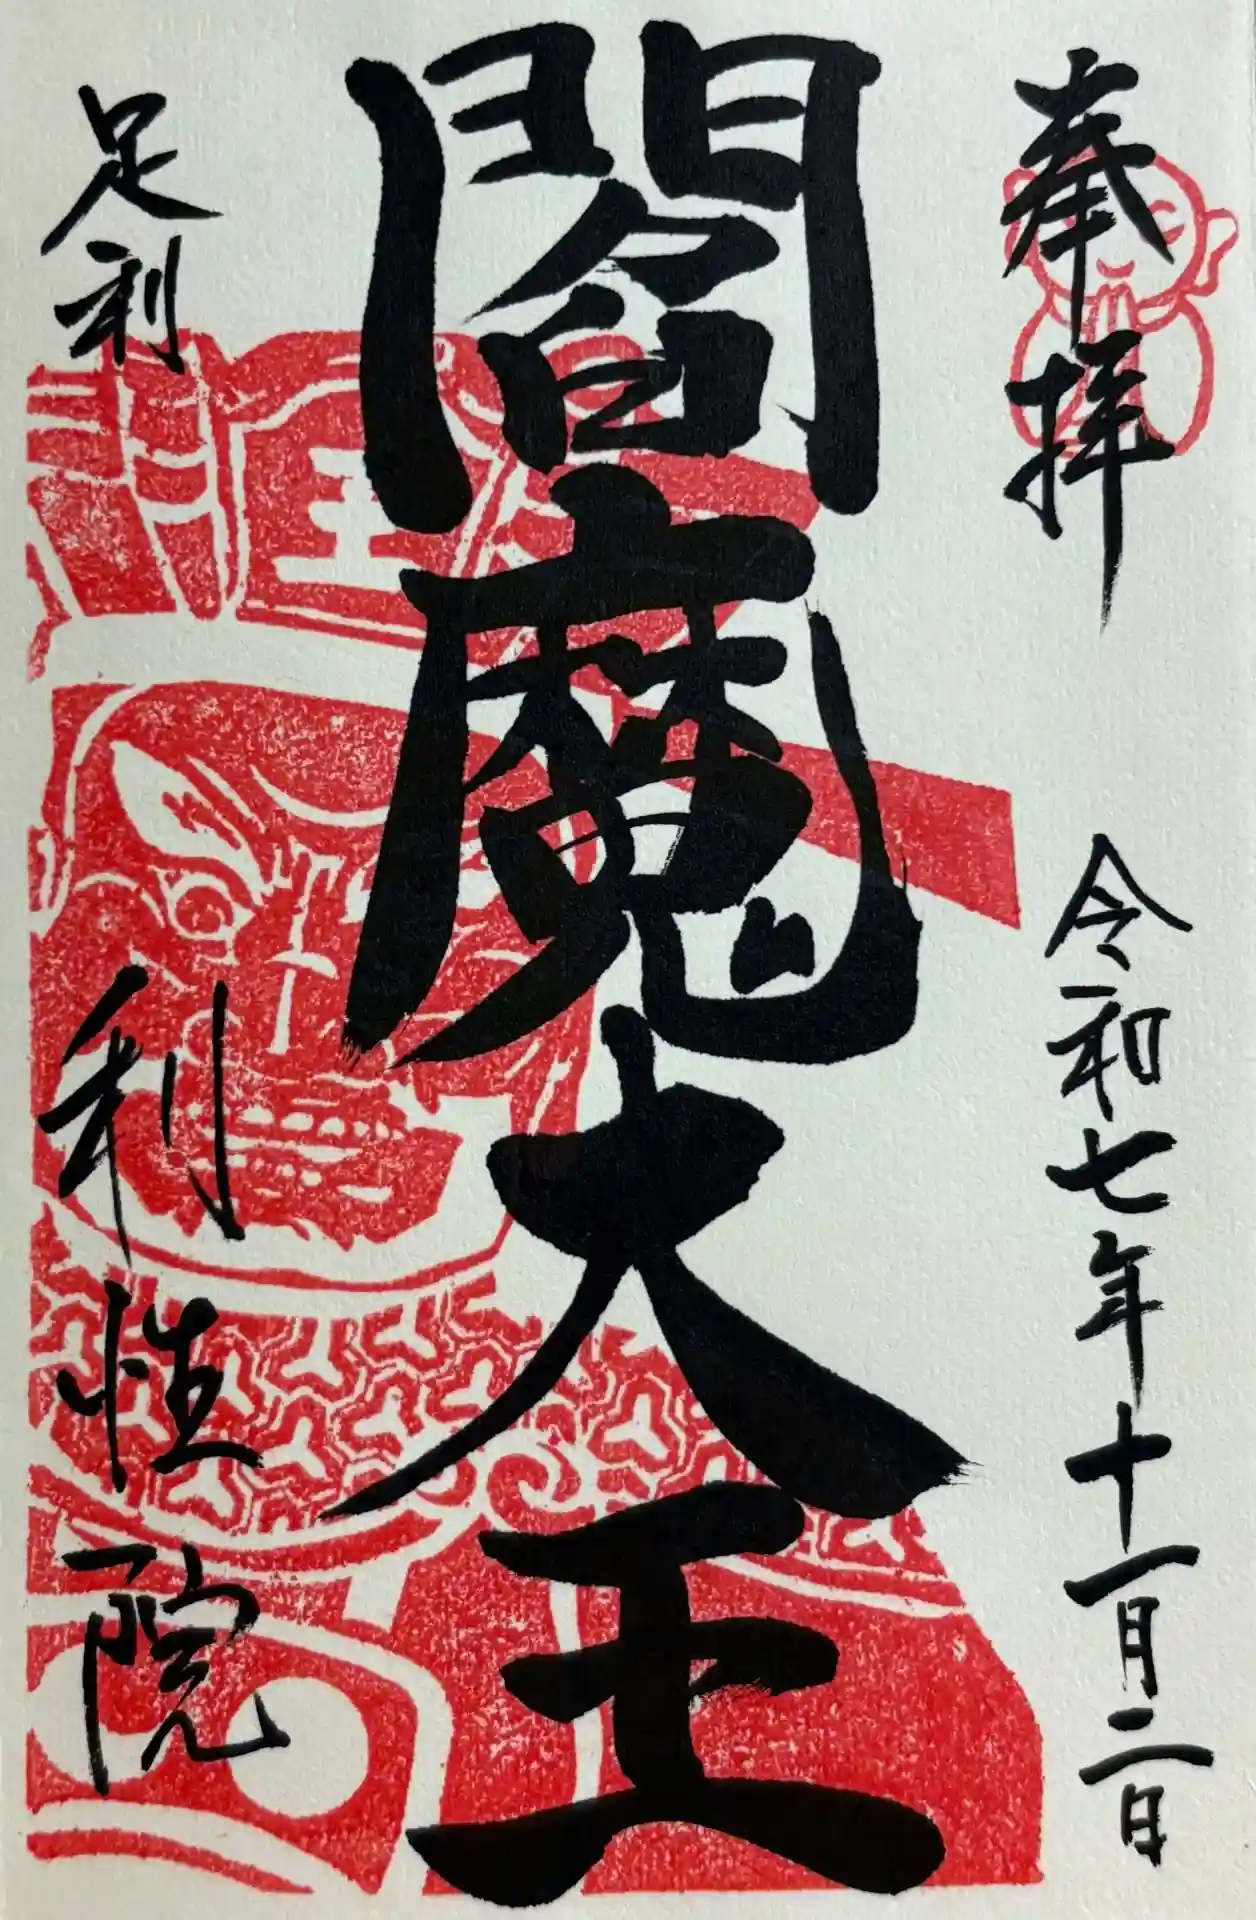 奉拝
令和七年十一月二日
閻魔大王
王
足利
利性院